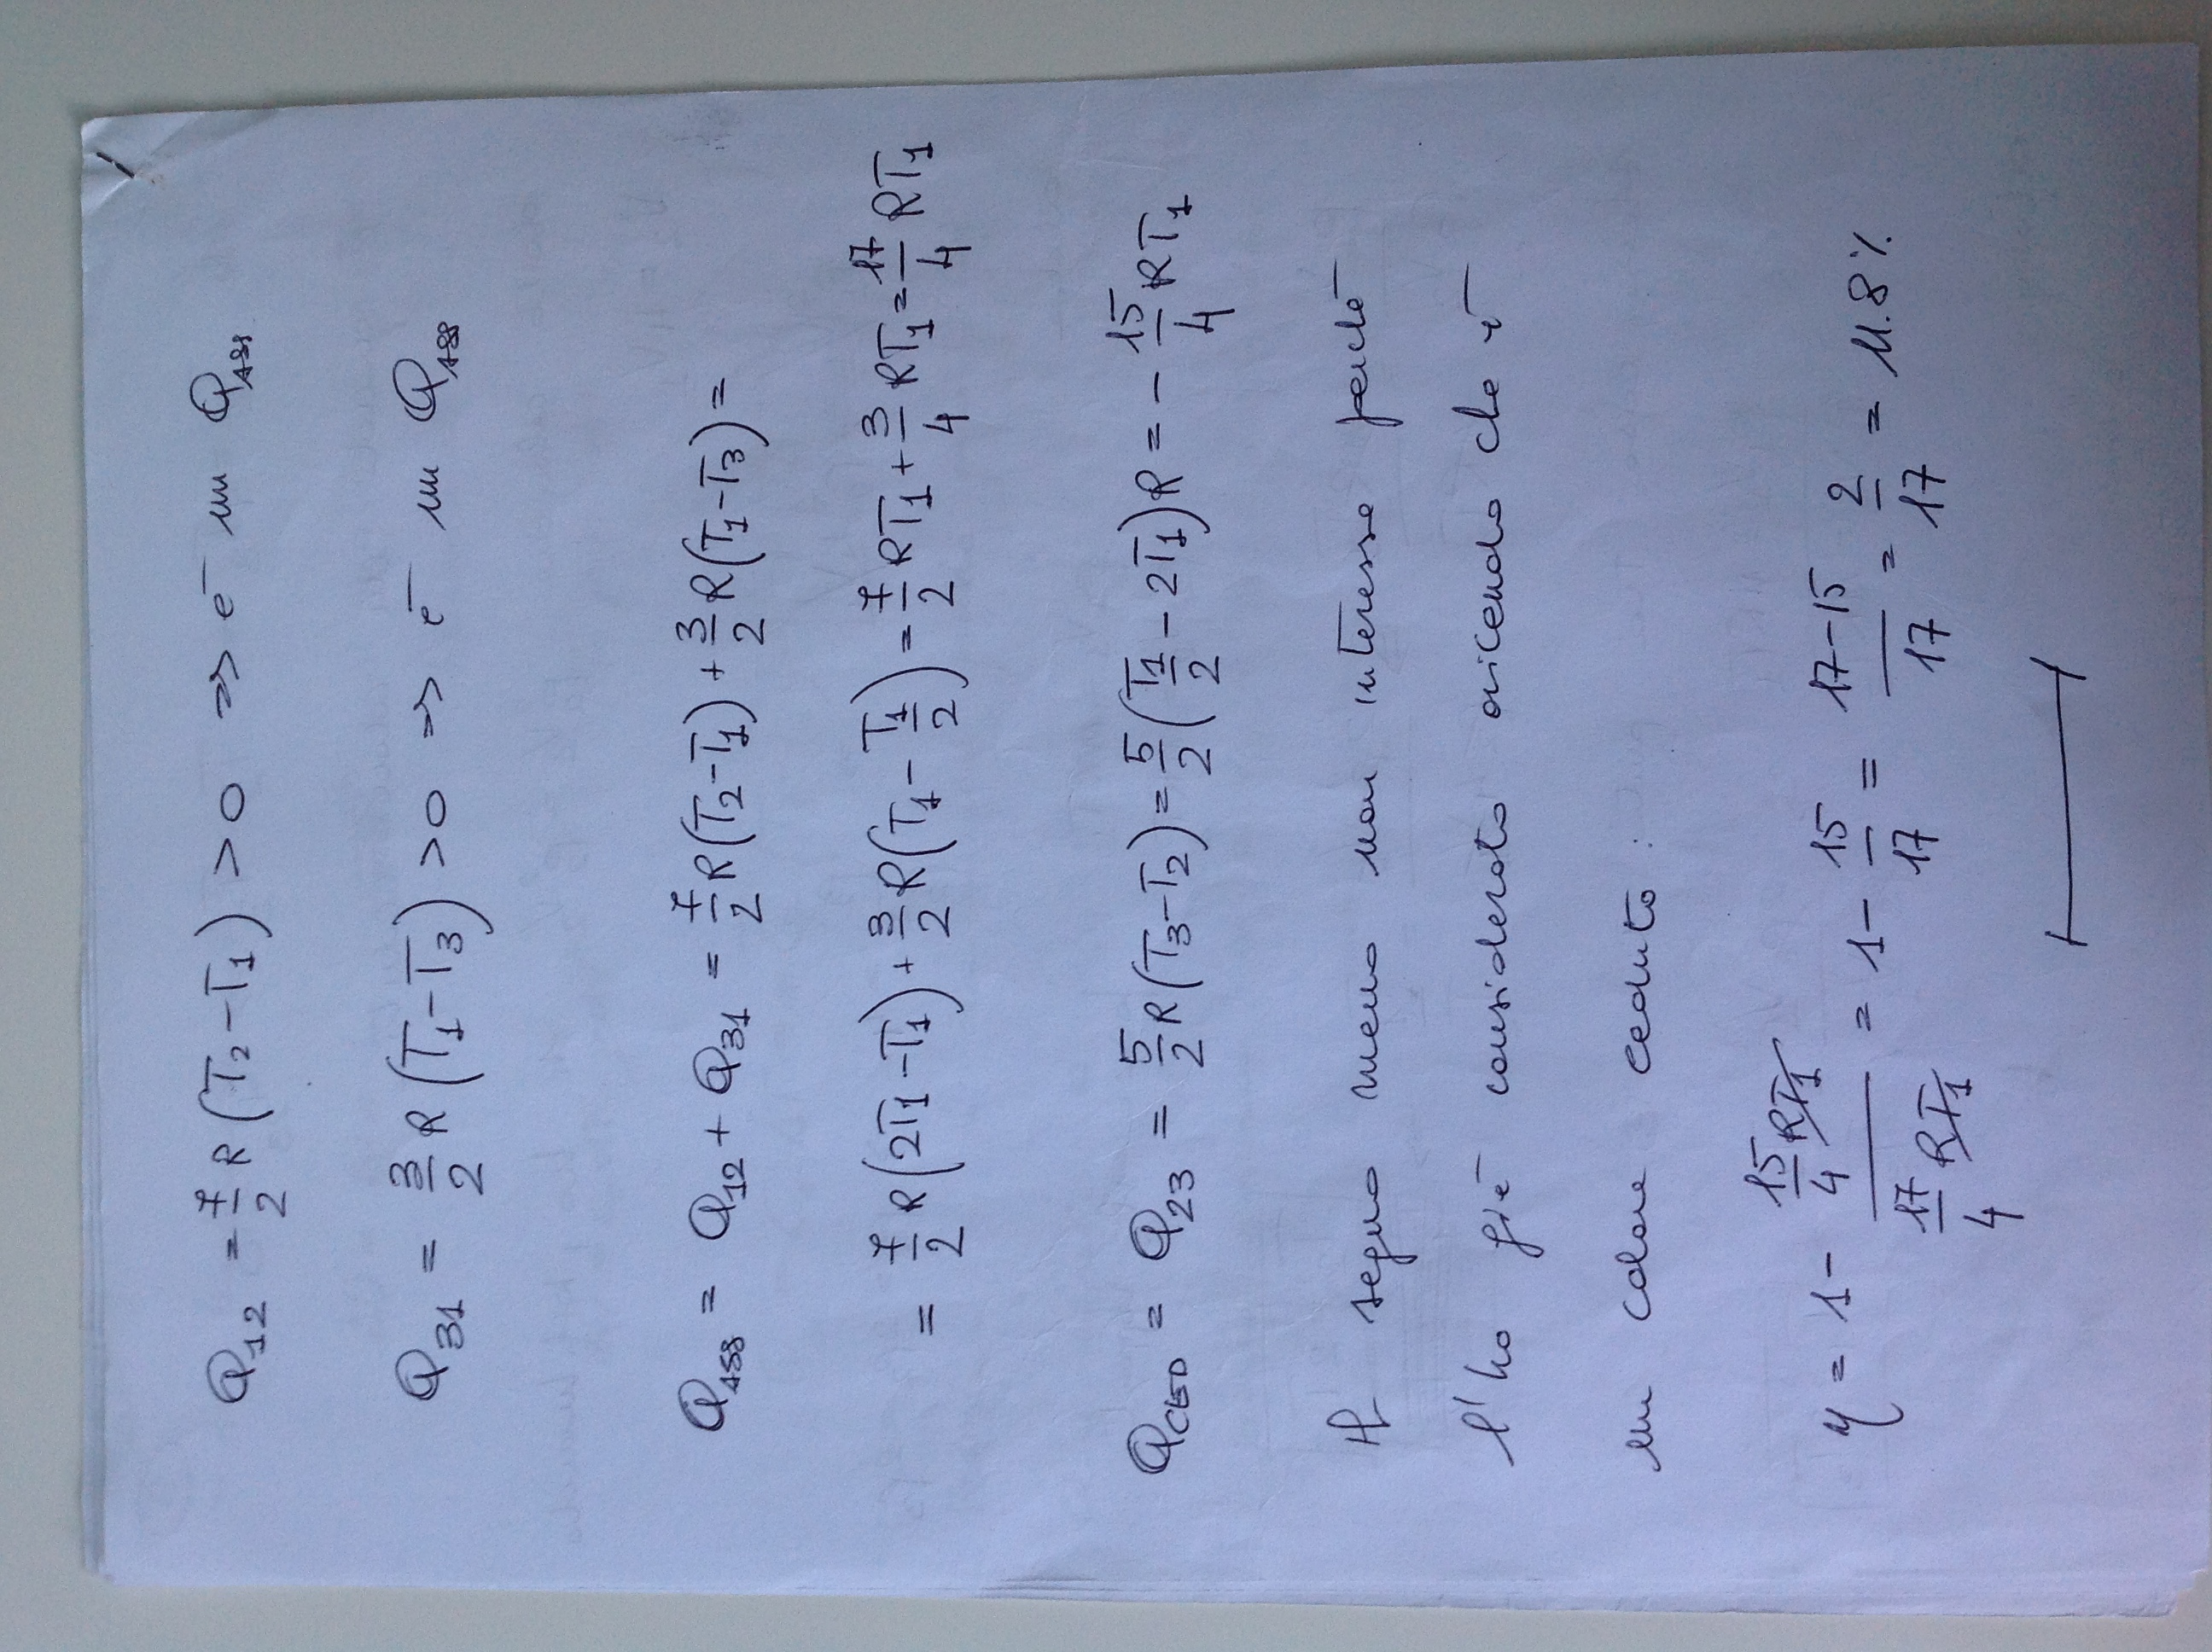 Q₁₂ = 7/2 R (T₂ - T₁) > 0 => è un Q_ASS
Q₃₁ = 3/2 R (T₁ - T₃) > 0 => è un Q_ASS
Q_ASS = Q₁₂ + Q₃₁ = 7/2 R (T₂ - T₁) + 3/2 R (T₁ - T₃) =
= 7/2 R (2T₁ - T₁) + 3/2 R (T₁ - T₁/2) = 7/2 RT₁ + 3/4 RT₁ = 17/4 RT₁
Q_CED = Q₂₃ = 5/2 R (T₃ - T₂) = 5/2 (T₁/2 - 2T₁) R = - 15/4 RT₁
Il segno meno non interessa perché
l'ho già considerato dicendo che è
un calore ceduto :
η = 1 - (15/4 RT₁)/(17/4 RT₁) = 1 - 15/17 = (17-15)/17 = 2/17 = 11.8%